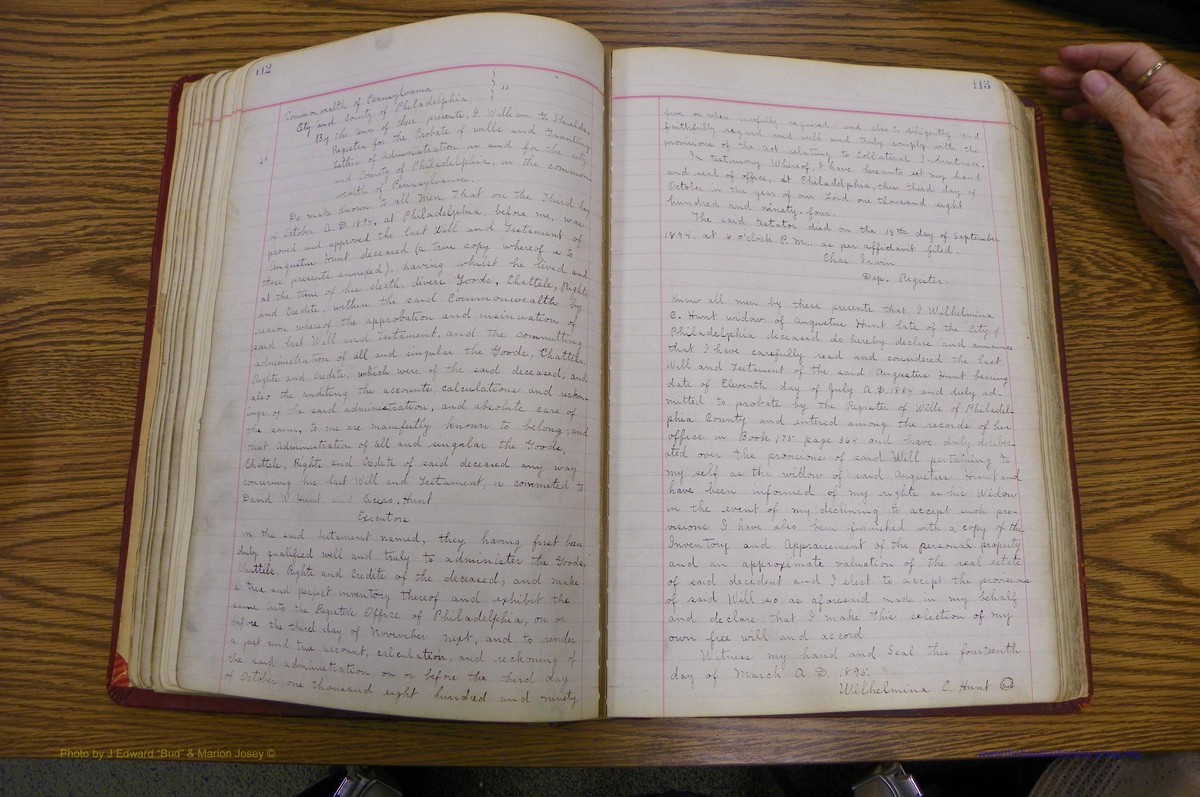 112
Commonwealth of Pennsylvania
City and County of Philadelphia } ss
By the tenor of these presents, I William G. Shields,
Register for the Probate of wills and Granting
letters of Administration in and for the city
and County of Philadelphia, in the common-
wealth of Pennsylvania,
Do make known to all Men, That on the Third day
of October A.D. 1894, at Philadelphia, before me, was
proved and approved the last Will and Testament of
Augustus Hunt deceased (a true copy whereof is to
these presents annexed), having whilst he lived and
at the time of his death, divers Goods, Chattels, Rights
and Credits, within the said Commonwealth by
reason whereof the approbation and insinuation of
said last Will and Testament, and the committing
administration of all and singular the Goods, Chattels,
Rights and Credits, which were of the said deceased; and
also the auditing the accounts, calculations and reckon-
ings of the said administration, and absolute care of
the same, to me are manifestly known to belong; and
that Administration of all and singular the Goods,
Chattels, Rights and Credits of said deceased any way
concerning his last Will and Testament, is committed to
David W. Hunt and Cicero Hunt
Executors
in the said Testament named, they having first been
duly qualified well and truly to administer the Goods,
Chattels, Rights and Credits of the deceased, and make
a true and perfect inventory thereof and exhibit the
same into the Register's Office of Philadelphia, on or
before the third day of November next, and to render
a just and true account, calculation, and reckoning of
the said administration, on or before the third day
of October, one thousand eight hundred and ninety
113
five or when lawfully required; and also to diligently and
faithfully regard and well and truly comply with the
provisions of the Act relating to Collateral Inheritance.
In testimony Whereof, I have hereunto set my hand
and seal of office, at Philadelphia, this third day of
October in the year of our Lord one thousand eight
hundred and ninety-four.
The said testator died on the 14th day of September
1894, at 6 o'clock P.M., as per affidavit filed.
Chas Irwin
Dep. Register.
Know all men by these presents that I Wilhelmina
C. Hunt widow of Augustus Hunt late of the City of
Philadelphia deceased do hereby declare and announce
that I have carefully read and considered the last
Will and Testament of the said Augustus Hunt bearing
date of Eleventh day of July A.D. 1884 and duly ad-
mitted to probate by the Register of Wills of Philadel-
phia County and entered among the records of her
office in Book 175 page 364 and have duly deliber-
ated over the provisions of said Will pertaining to
my self as the widow of said Augustus Hunt and
have been informed of my rights as his Widow
in the event of my declining to accept such pro-
visions I have also been furnished with a copy of the
Inventory and Appraisement of the personal property
and an approximate valuation of the real estate
of said decident and I elect to accept the provisions
of said Will so as aforesaid made in my behalf
and declare that I make this selection of my
own free will and accord
Witness my hand and Seal this fourteenth
day of March A.D. 1895.
Wilhelmina C. Hunt
Photo by J Edward "Bud" & Marion Josey ©